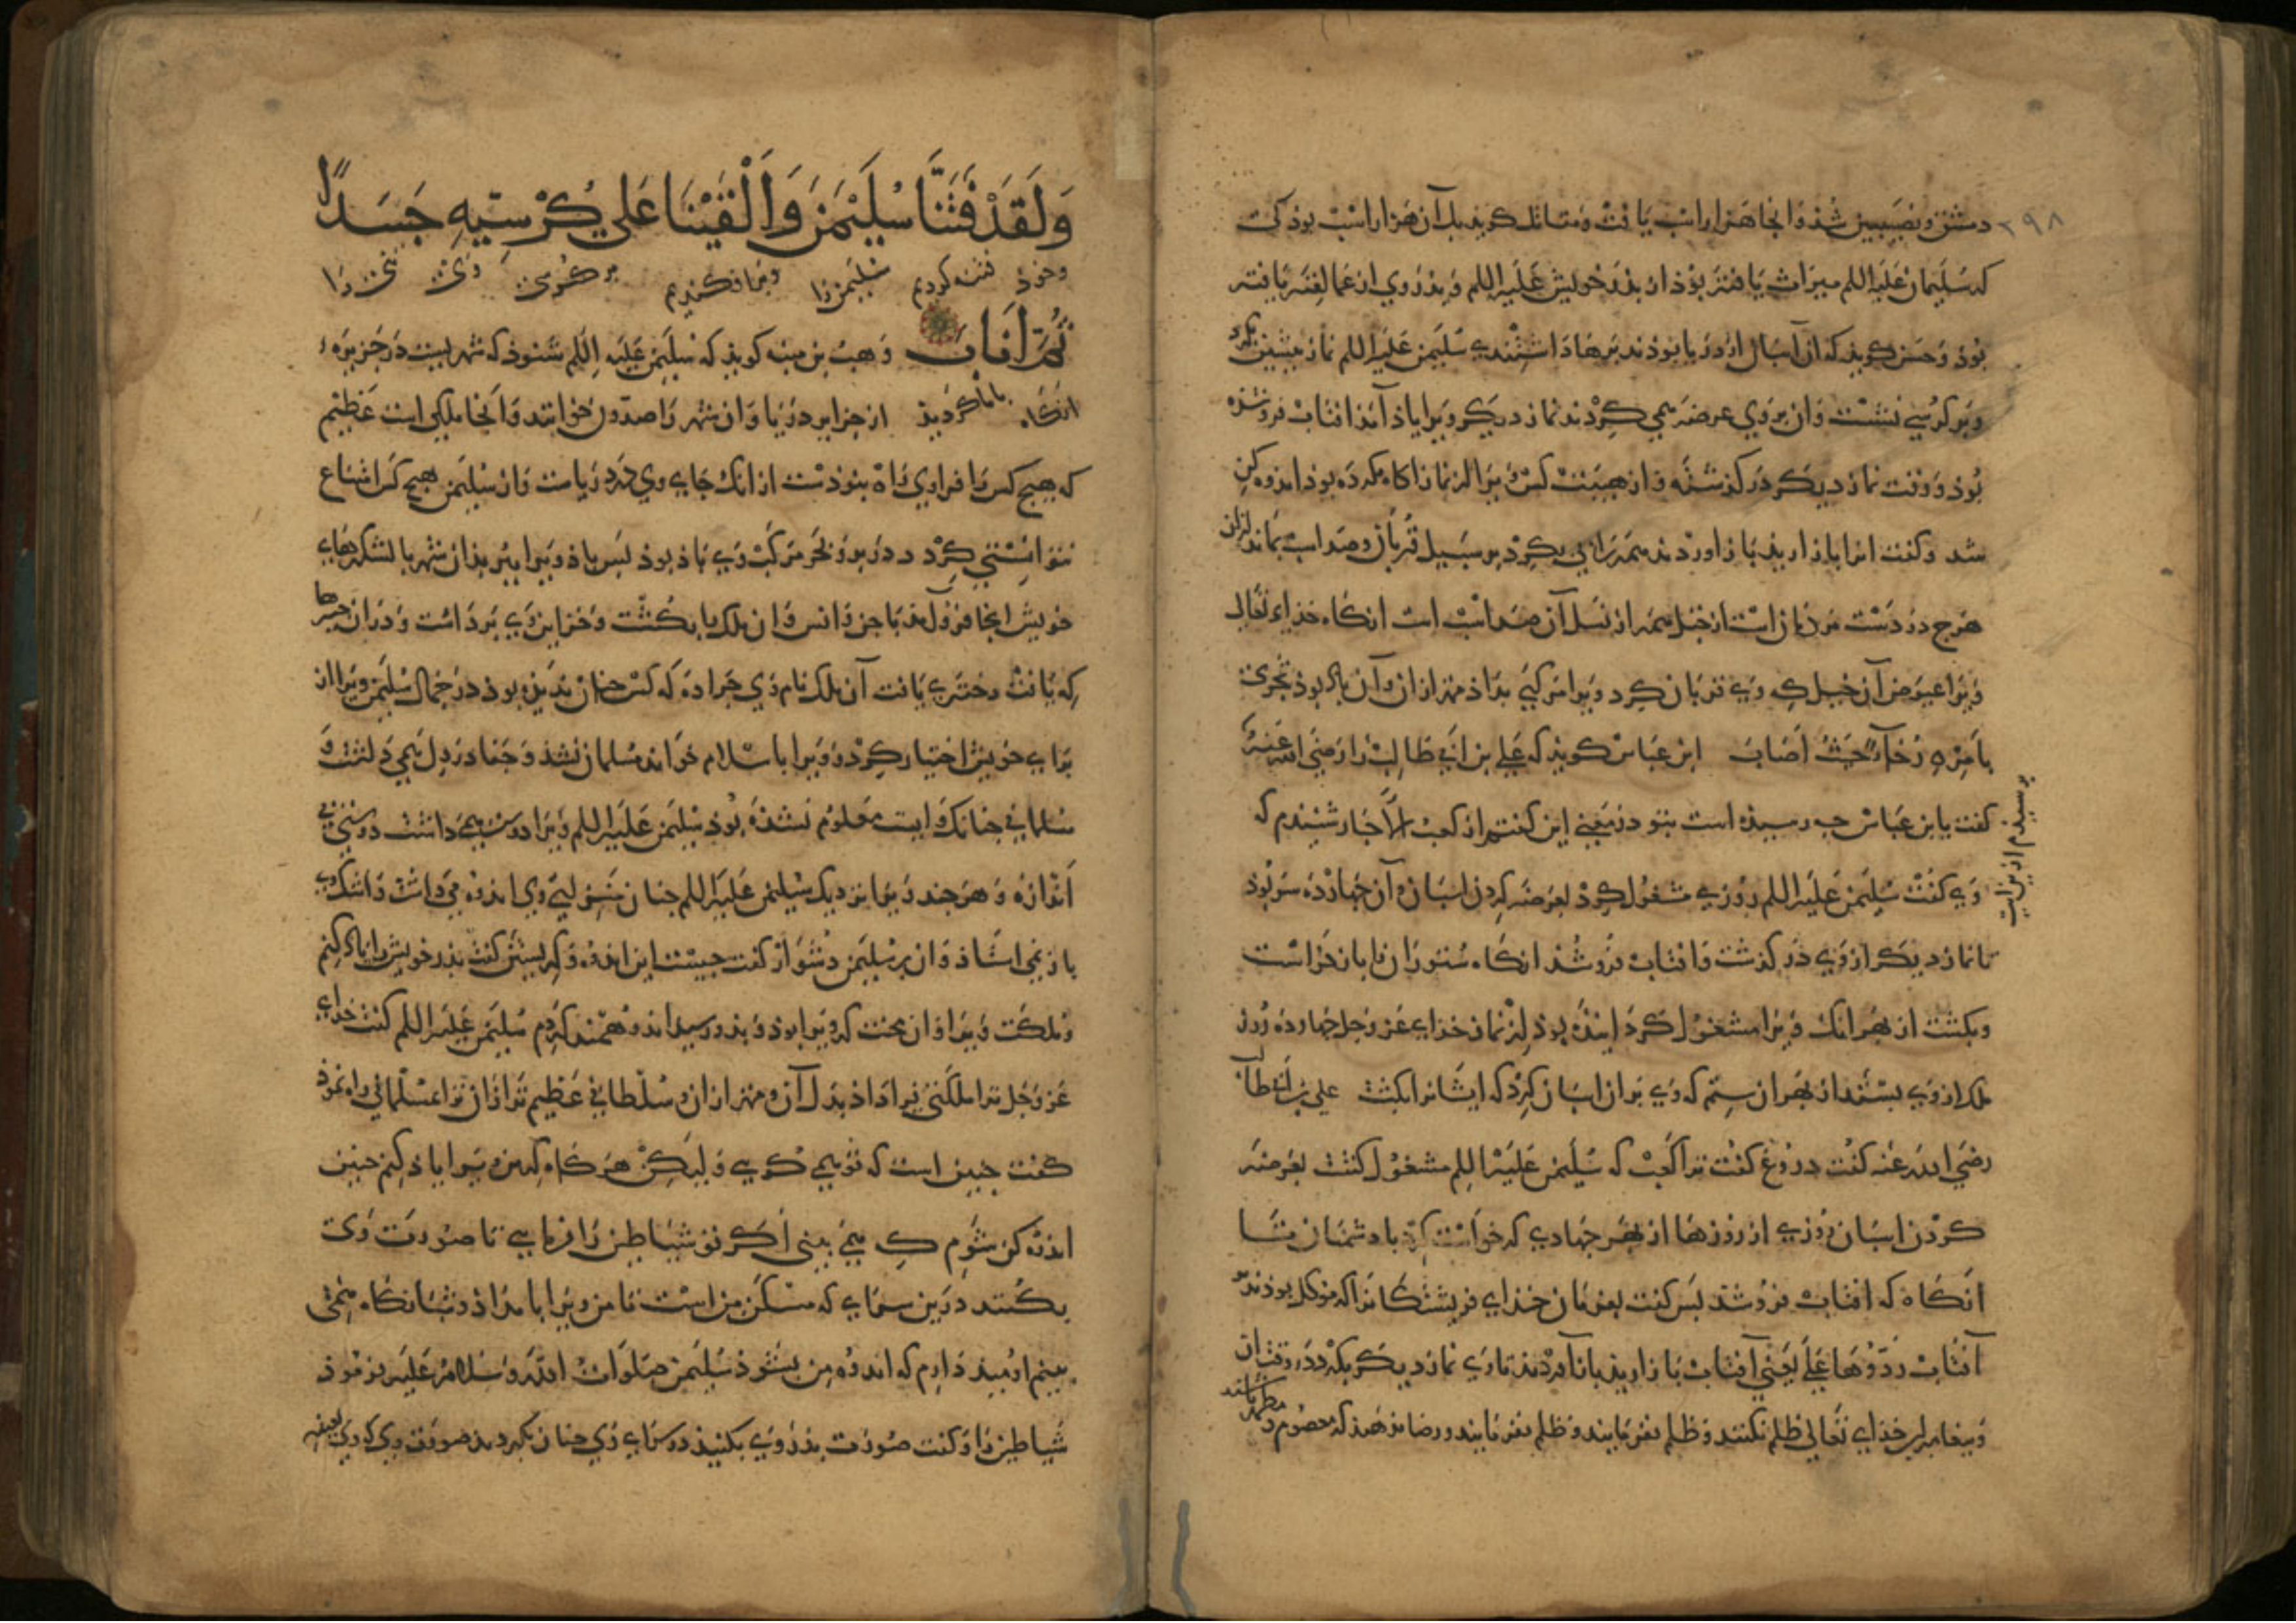 دمشق و نصیبین شذ و انجا هزار اسب یافت و مقاتل کویذ بل آن هزار اسب بوذ کی
که سلیمان علیه اللم میراث یافته بوذ از پذر خویش علیه اللم و پذر وی از عمالقه یافته
بوذ و حسن کویذ که آن اسبان از دریا بوذند پرها داشتندی سلیمن علیه اللم نماز پیشین بکرد
و بر کرسی نشست و ان بر وی عرضه می کردند نماز دیکر ویرا یاذ آمذ افتاب فرو شذه
بوذ و وقت نماز دیکر در کذشته و از هیبت کس ویرا از نماز اکاه نکرده بوذ اندوه کن
شد و کفت انرا باز اریذ باز اوردند همه را پی بکرد بر سبیل قربان و صد اسب بماند از ان
هرج در دست مردمان است از خیل همه از نسل آن صد اسب است انکاه خذای تعالی
ویرا عوض آن خیل که وی قربان کرد ویرا مرکبی بداذ بهتر از ان و آن باد بوذ تجری
بامره رخاء حیث اصاب ابن عباس کویذ که علی بن ابی طالب را رضی الله عنه
پرسیذم ازین ایت
کفت یا بن عباس چه رسیذه است بتو در معنی این کفتم از کعب الاحبار شنیذم که
وی کفت سلیمن علیه اللم روزی مشغول کرد بعرضه کردن اسبان و آن چهارده سر بوذ
تا نماز دیکر از وی در کذشت و افتاب فرو شذ انکاه ستوران را باز خواست
و بکشت از بهر انک ویرا مشغول کرد اینده بوذ از نماز خذای عز و جل چهارده روز
ملک از وی بستد از بهر ان ستم که وی بر ان اسبان کرد که ایشانرا بکشت علی بن ابی طالب
رضی الله عنه کفت دروغ کفت ترا کعب که سلیمن علیه اللم مشغول کشت بعرضه
کردن اسبان روزی از روزها از بهر جهادی که خواست کرد با دشمنان تا
آنکاه که افتاب فرو شذ پس کفت بفرمان خذای فریشتکانرا که موکل بوذند بر
آفتاب ردوها علی یعنی آفتاب باز اریذ باز آوردند تا وی نماز دیکر بکرد در وقت ان
و پیغامبران خذای تعالی ظلم نکنند و ظلم نفرمایند و ظلم نفرمایند و رضا ندهند که معصوم و مطهر باشند
ولقد فتنا سلیمن والقینا علی کرسیه جسدا
و خوذ فتنه کردیم سلیمن را و بر افکندیم بر کرسی وی تنی را
ثم اناب وهب بن منبه کویذ که سلیمن علیه اللم شنوذ که شهریست در جزیره
انکاه باز کردیذ از جزایر دریا و ان شهر را صدون خوانند و انجا ملکی است عظیم
که هیچ کس را فرا وی راه نبوذست از انک جای وی در دریاست و از سلیمن هیچ کس امتناع
نتوانستی کرد در بر و بحر مرکب وی باذ بوذ پس باذ ویرا ببر بذان شهر با لشکرهای
خویش انجا فرو آمذ با جن و انس و ان ملک را بکشت و خزاین وی برداشت و در ان چیزها
که یافت دختری یافت آن ملک نام وی جراده که کس چنان ندیذه بوذ در جمال سلیمن ویرا از
برای خویش اختیار کرد و ویرا باسلام خواند مسلمان نشذ و جفا در دل می داشت و
مسلمانی چنانک وایست معلوم نشذه بوذ سلیمن علیه اللم ویرا دوست می داشت دوستی بی
اندازه و هر چند ویرا نزدیک سلیمن علیه اللم چنان منزلتی وی اندوه می داشت و اشک وی
باز نمی استاذ و ان بر سلیمن دشوار کفت چیست این اندوه و کریستن کفت پذر خویش را یاد کنم
و ملکت ویرا و ان محنت که ویرا بوذ و بذو رسید اندوهمند کردم سلیمن علیه اللم کفت خذای
عز و جل ترا ملکتی فرا داذ بدل آن و بهتر از ان و سلطانی عظیم تر از ان ترا مسلمانی راه نموذ
کفت چنین است که تو می کویی و لیکن هر کاه که من ویرا یاذ کنم چنین
اندوه کن شوم که می بینی اکر تو شیاطین را فرمایی تا صورت وی
بکنند درین سرای که مسکن من است تا من ویرا بامداذ و شبانکاه می
بینم اومیذ دارم که اندوه من بشوذ سلیمن صلوات الله و سلامه علیه بفرموذ
شیاطین را و کفت صورت پذر وی بکنیذ در سرای وی چنان بکردند صورت وی که وی بعینه